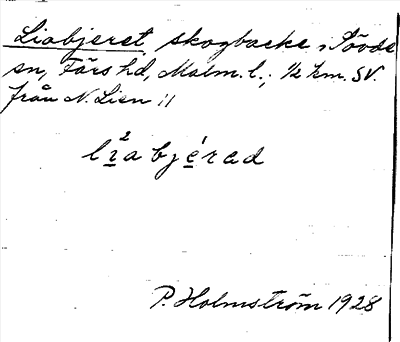 Liabjeret, skogbacke, Sövde
sn, Färs hd, Malm. l., 1/2 km. SV.
från N. Lien 11
li²abjérad
P. Holmström 1928